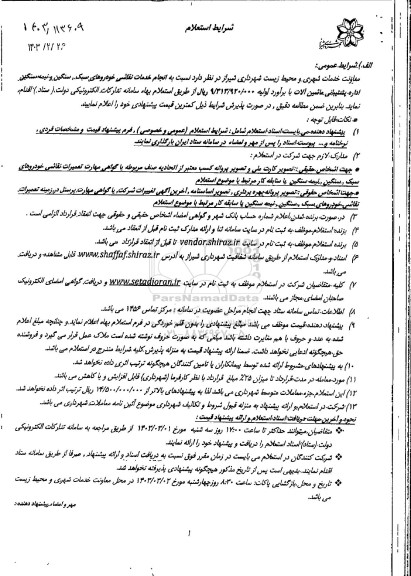 شرایط استعلام
الف) شرایط عمومی:
معاونت خدمات شهری و محیط زیست شهرداری شیراز در نظر دارد نسبت به انجام خدمات نقاشی خودروهای سبک، سنگین و نیمه سنگین
اداره پشتیبانی ماشین آلات با برآورد اولیه ۹/۳۱۳/۹۲۰/۰۰۰ ریال از طریق استعلام بهاء سامانه تدارکات الکترونیکی دولت (ستاد) اقدام
نماید. بنابرین ضمن مطالعه دقیق، در صورت پذیرش شرایط ذیل کمترین قیمت پیشنهادی خود را اعلام نمایید.
• نکات قابل توجه:
۱) پیشنهاد دهنده می بایست اسناد استعلام شامل: شرایط استعلام (عمومی و خصوصی)، فرم پیشنهاد قیمت و مشخصات فردی،
نرخنامه و... پیوست اسناد را پس از مهر و امضاء در سامانه ستاد ایران بارگذاری نمایند.
۲) مدارک لازم جهت شرکت در استعلام:
جهت اشخاص حقیقی: تصویر کارت ملی و تصویر پروانه کسب معتبر از اتحادیه صنف مربوطه یا گواهی مهارت تعمیرات نقاشی خودروهای
سبک، سنگین، نیمه سنگین یا سابقه کار مرتبط با موضوع استعلام
جهت اشخاص حقوقی: تصویر پروانه بهره برداری، تصویر اساسنامه، آخرین آگهی تغییرات شرکت، یا گواهی مهارت پرسنل در زمینه تعمیرات
نقاشی خودروهای سبک، سنگین، نیمه سنگین یا سابقه کار مرتبط با موضوع استعلام
۳) در صورت برنده شدن، اعلام شماره حساب بانک شهر و گواهی امضاء اشخاص حقیقی و حقوقی جهت انعقاد قرارداد الزامی است.
۴) برنده استعلام موظف به ثبت نام در سایت سامانه ثنا و ارائه مدارک ثبت نام قبل از انعقاد می باشد.
۵) برنده استعلام موظف به ثبت نام در سایت vendor.shiraz.ir تا قبل از انعقاد قرارداد می باشد.
۶) اسناد و مدارک استعلام از طریق سامانه شفافیت شهرداری شیراز به آدرس www.shaffaf.shiraz.ir قابل مشاهده و دریافت
می باشد.
۷) کلیه متقاضیان شرکت در استعلام موظف به ثبت نام در سایت www.setadiran.ir و دریافت گواهی امضای الکترونیک
صاحبان امضای مجاز می باشند.
۸) اطلاعات تماس سامانه ستاد جهت انجام مراحل عضویت در سامانه: مرکز تماس ۱۴۵۶ می باشد.
۹) پیشنهاد دهنده قیمت موظف می باشد مبلغ پیشنهادی را بدون قلم خوردگی در فرم استعلام بهاء اعلام نماید و چنانچه مبلغ اعلام
شده به عدد و حروف با هم مغایرت داشته باشد مبلغی که به صورت حروف نوشته شده است ملاک عمل قرار می گیرد و فروشنده
حق هیچگونه ادعایی نخواهد داشت. ضمنا ارائه پیشنهاد قیمت به منزله پذیرش کلیه شرایط مندرج در استعلام می باشد.
۱۰) به پیشنهادهای مشروط ارائه شده توسط پیمانکاران یا تامین کنندگان هیچگونه ترتیب اثری داده نخواهد شد.
۱۱) مورد معامله در مدت قرارداد تا میزان ۲۵٪ مبلغ قرارداد با نظر کارفرما (شهرداری) قابل افزایش و یا کاهش می باشد.
۱۳) شرکت در استعلام و ارائه پیشنهاد به منزله قبول شروط و تکالیف شهرداری موضوع آئین نامه معاملات شهرداری می باشد.
نحوه و آخرین مهلت دریافت اسناد استعلام و ارائه پیشنهاد قیمت:
متقاضیان میتوانند حداکثر تا ساعت ۱۷:۰۰ روز سه شنبه مورخ ۱۴۰۳/۰۳/۰۱ از طریق مراجعه به سامانه تدارکات الکترونیکی
دولت (ستاد) اسناد استعلام را دریافت و پیشنهاد خود را ارائه نمایند.
شرکت کنندگان در استعلام می بایست در زمان مقرر فوق نسبت به دریافت اسناد و ارائه پیشنهاد، صرفا از طریق سامانه ستاد
اقدام نمایند. بدیهی است پس از تاریخ مذکور هیچگونه پیشنهادی پذیرفته نخواهد شد.
تاریخ و محل بازگشایی پاکات: ساعت ۸:۳۰ روز چهارشنبه مورخ ۱۴۰۳/۰۳/۰۲ در محل معاونت خدمات شهری و محیط زیست
می باشد.
مهر و امضاء پیشنهاد دهنده:
۱
ParsNamadData